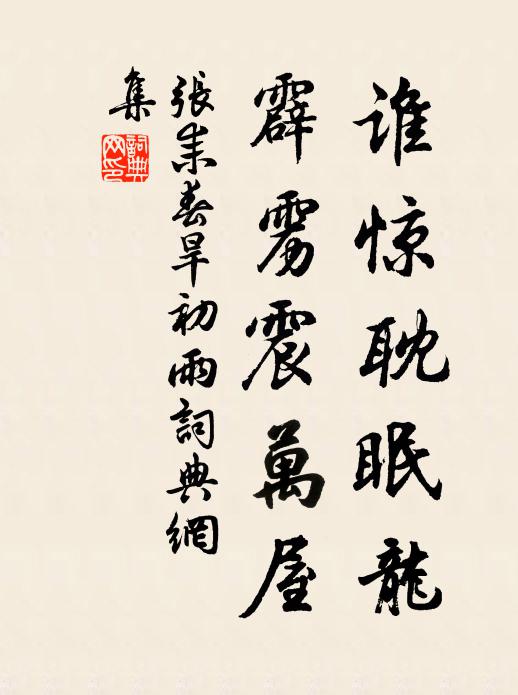 谁惊耽眠龍
霹雳震萬屋
張耒春旱初雨詞典網
集
詞典
网印